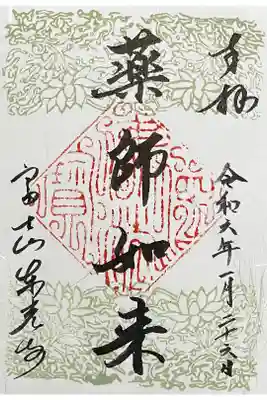 奉拝
令和六年一月二十六日
薬師如来
富士山